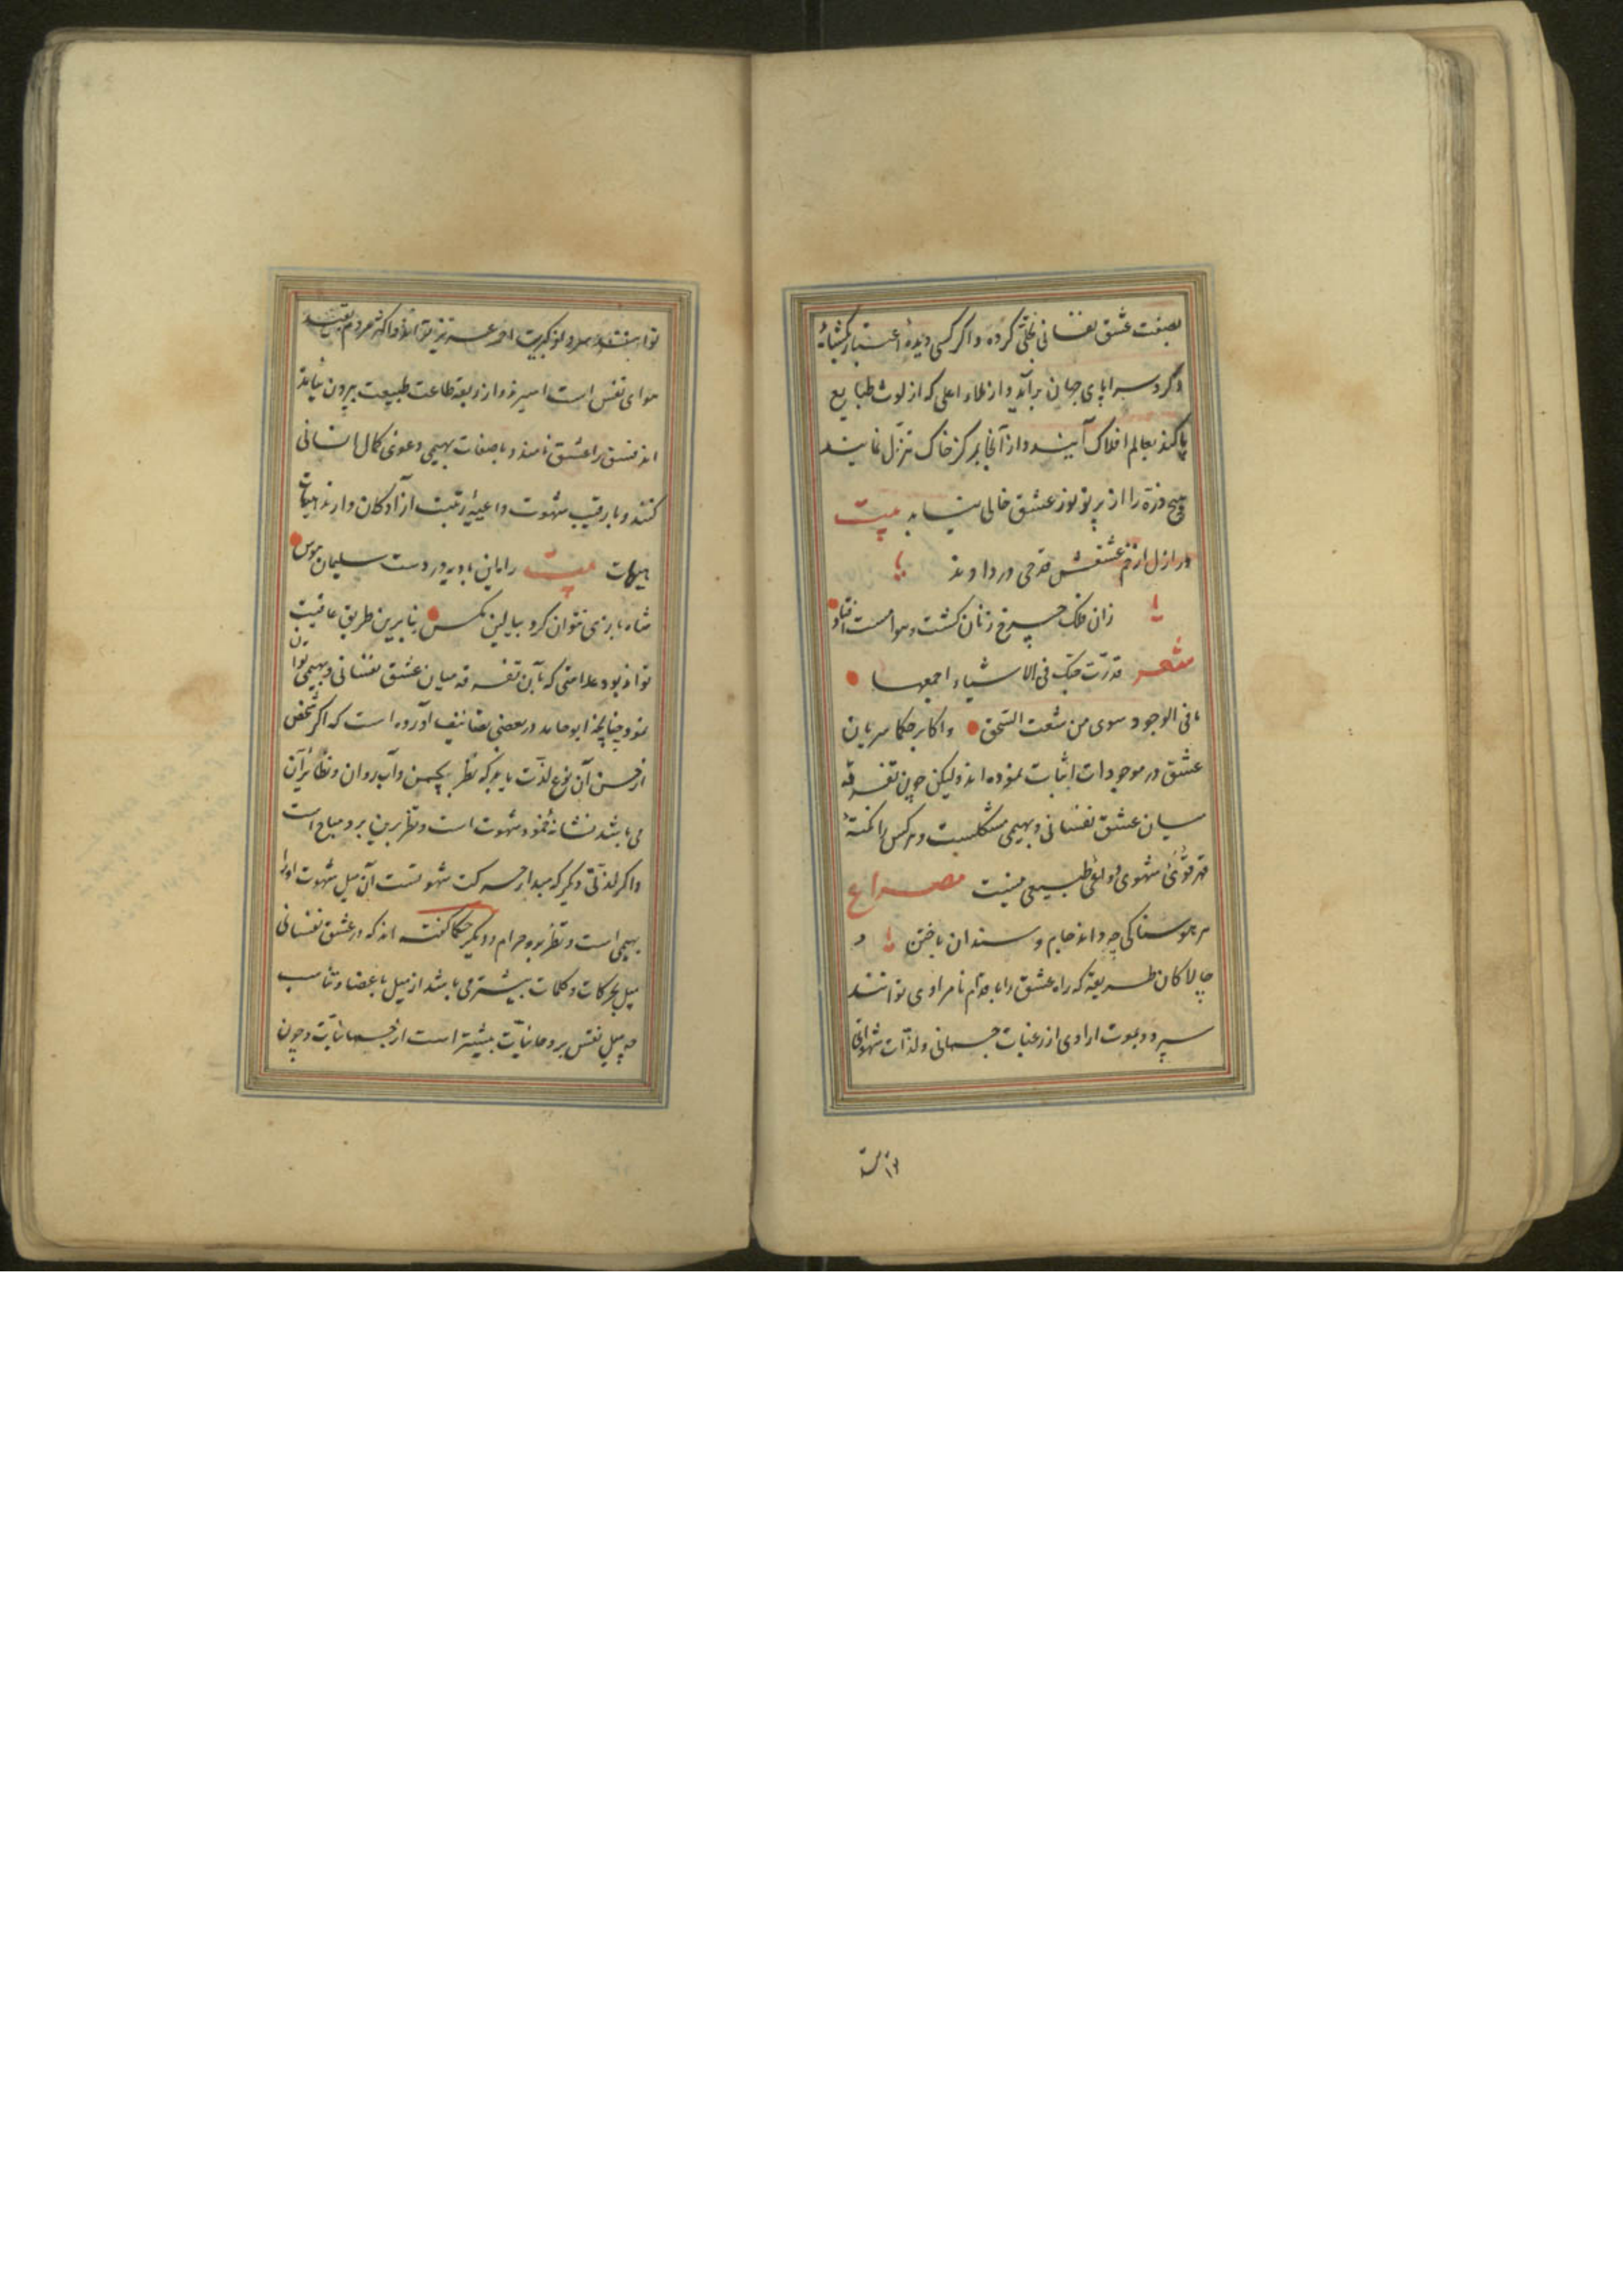 بصفت عشق نفسانی تجلّی کرده و اگر کسی دیدهٔ اعتبار بکشاید
و کرد سراپای جهان برآید و از ملاء اعلی که از لوث طبایع
پاکند بعالم افلاک آیند و از آنجا بمرکز خاک تنزّل نمایند
هیچ ذرّه را از پرتو نور عشق خالی نیابد بیت
در ازل از خم عشقش قدحی در دادند
زان فلک چرخ زنان کشت و هوا مست افتاد
شعر قد رتّت حبّک فی الاشیاء اجمعها
ما فی الوجود سوی من شعت المتحق و اکابر حکما سریان
عشق در موجودات اثبات نموده اند و لیکن چون تفرقه
میان عشق نفسانی و بهیمی مشکلست و هر کس را مکنهٔ
قهر قوّی شهوی و دواعی طبیعی نیست مصراع
هر هوسناکی چه داند جام و سندان باختن و
چالاکان طریقه که راه عشق را باقدام نامرادی توانند
سپرد و بموت ارادی از رغبات جسمانی و لذّات شهوانی
توانند
توانند کبریت احمر عزیز و اکثر مردم بقید
هوای نفس است اسیرند و از ربقهٔ طاعت طبیعت بیرون نیامده
اند فسق را عشق نامند و با صفات بهیمی دعوی کمال انسانی
کنند و با رقیت شهوت داعیهٔ رتبت آزادکان دارند هیهات
هیهات بیت راه این بادیه در دست سلیمان هوس
شاه بازی نتوان کرد ببالین مکس بنابرین طریق عافیت
تواند بود علامتی که بآن تفرقه میان عشق نفسانی و بهیمی توان
نمود چنانچه ابو حامد در بعضی تصانیف آورده است که اکر شخص
از حسن آن نوع لذّت یابد که نظر بچمن و آب روان و نظایر آن
می باشد نشانهٔ خمود شهوت است و نظر برین برو مباح است
و اکر لذّتی دیکر که مبدأ حرکت شهوتست آن میل شهوت اورا
بهیمی است و نظر برو حرام و دیکر حکما کفته اند که در عشق نفسانی
میل بحرکات و کلمات بیشتر می باشد از میل باعضا و تناسب
چه میل نفس بروحانیّات بیشتر است از جسمانیّات و چون